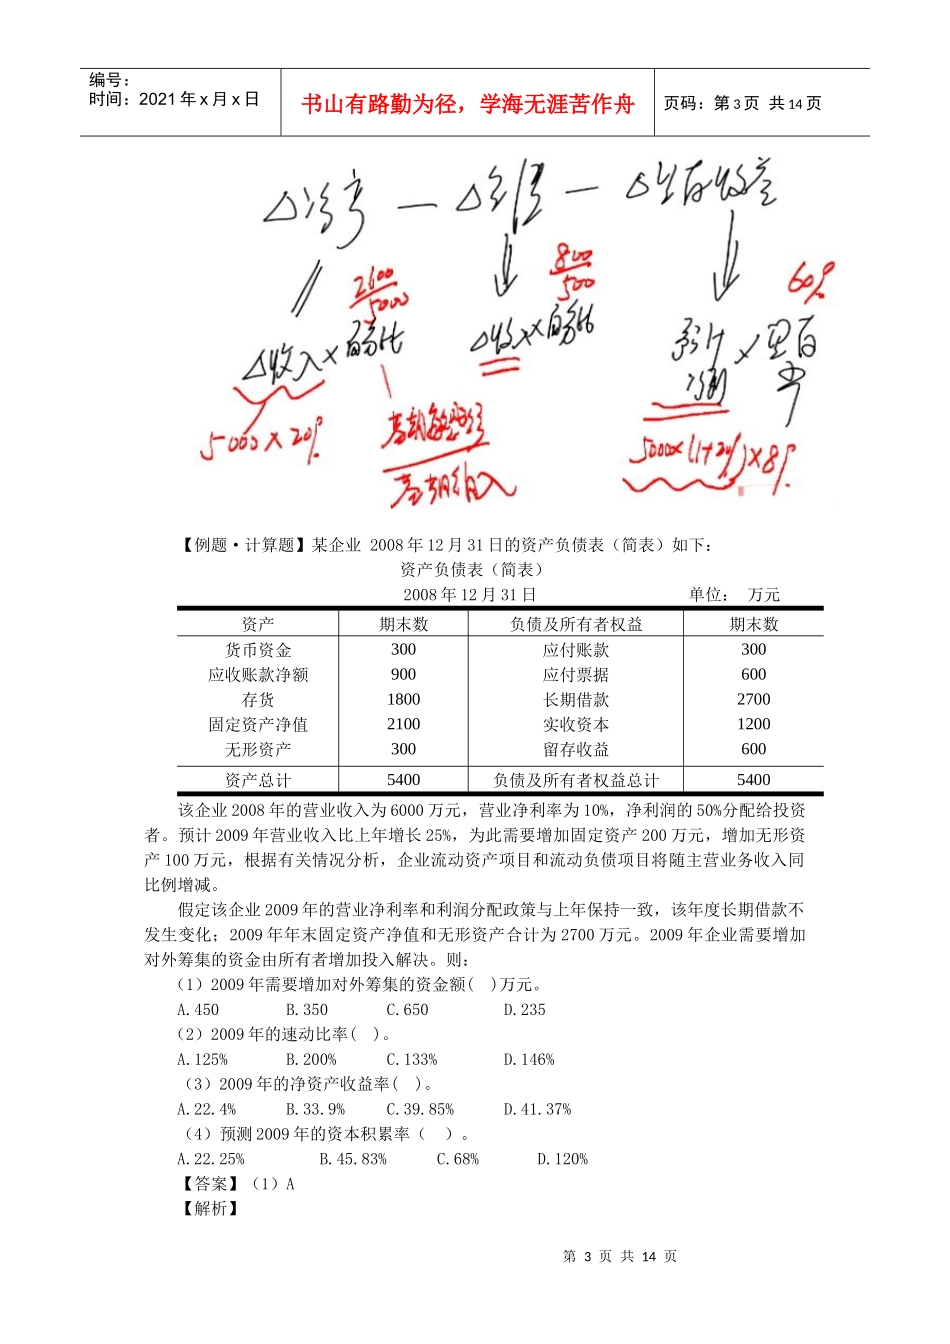 编号：
时间：2021年x月x日
书山有路勤为径，学海无涯苦作舟
页码：第3页 共14页
△资产 — △负债 — △留存收益
2600/5000
800/500
60%
△收入×百分比
△收入×百分比
预计净利×留存率
5000×20%
基期敏感资产/基期收入
5000×(1+20%)×8%
【例题·计算题】某企业 2008年12月31日的资产负债表（简表）如下：
资产负债表（简表）
2008年12月31日 单位： 万元
资产 期末数 负债及所有者权益 期末数
货币资金 300 应付账款 300
应收账款净额 900 应付票据 600
存货 1800 长期借款 2700
固定资产净值 2100 实收资本 1200
无形资产 300 留存收益 600
资产总计 5400 负债及所有者权益总计 5400
该企业2008年的营业收入为6000万元，营业净利率为10%，净利润的50%分配给投资
者。预计2009年营业收入比上年增长25%，为此需要增加固定资产200万元，增加无形资
产100万元，根据有关情况分析，企业流动资产项目和流动负债项目将随主营业务收入同
比例增减。
假定该企业2009年的营业净利率和利润分配政策与上年保持一致，该年度长期借款不
发生变化；2009年年末固定资产净值和无形资产合计为2700万元。2009年企业需要增加
对外筹集的资金由所有者增加投入解决。则：
（1）2009年需要增加对外筹集的资金额( )万元。
A.450 B.350 C.650 D.235
（2）2009年的速动比率( )。
A.125% B.200% C.133% D.146%
（3）2009年的净资产收益率( )。
A.22.4% B.33.9% C.39.85% D.41.37%
（4）预测2009年的资本积累率（ ）。
A.22.25% B.45.83% C.68% D.120%
【答案】（1）A
【解析】
第 3 页 共 14 页